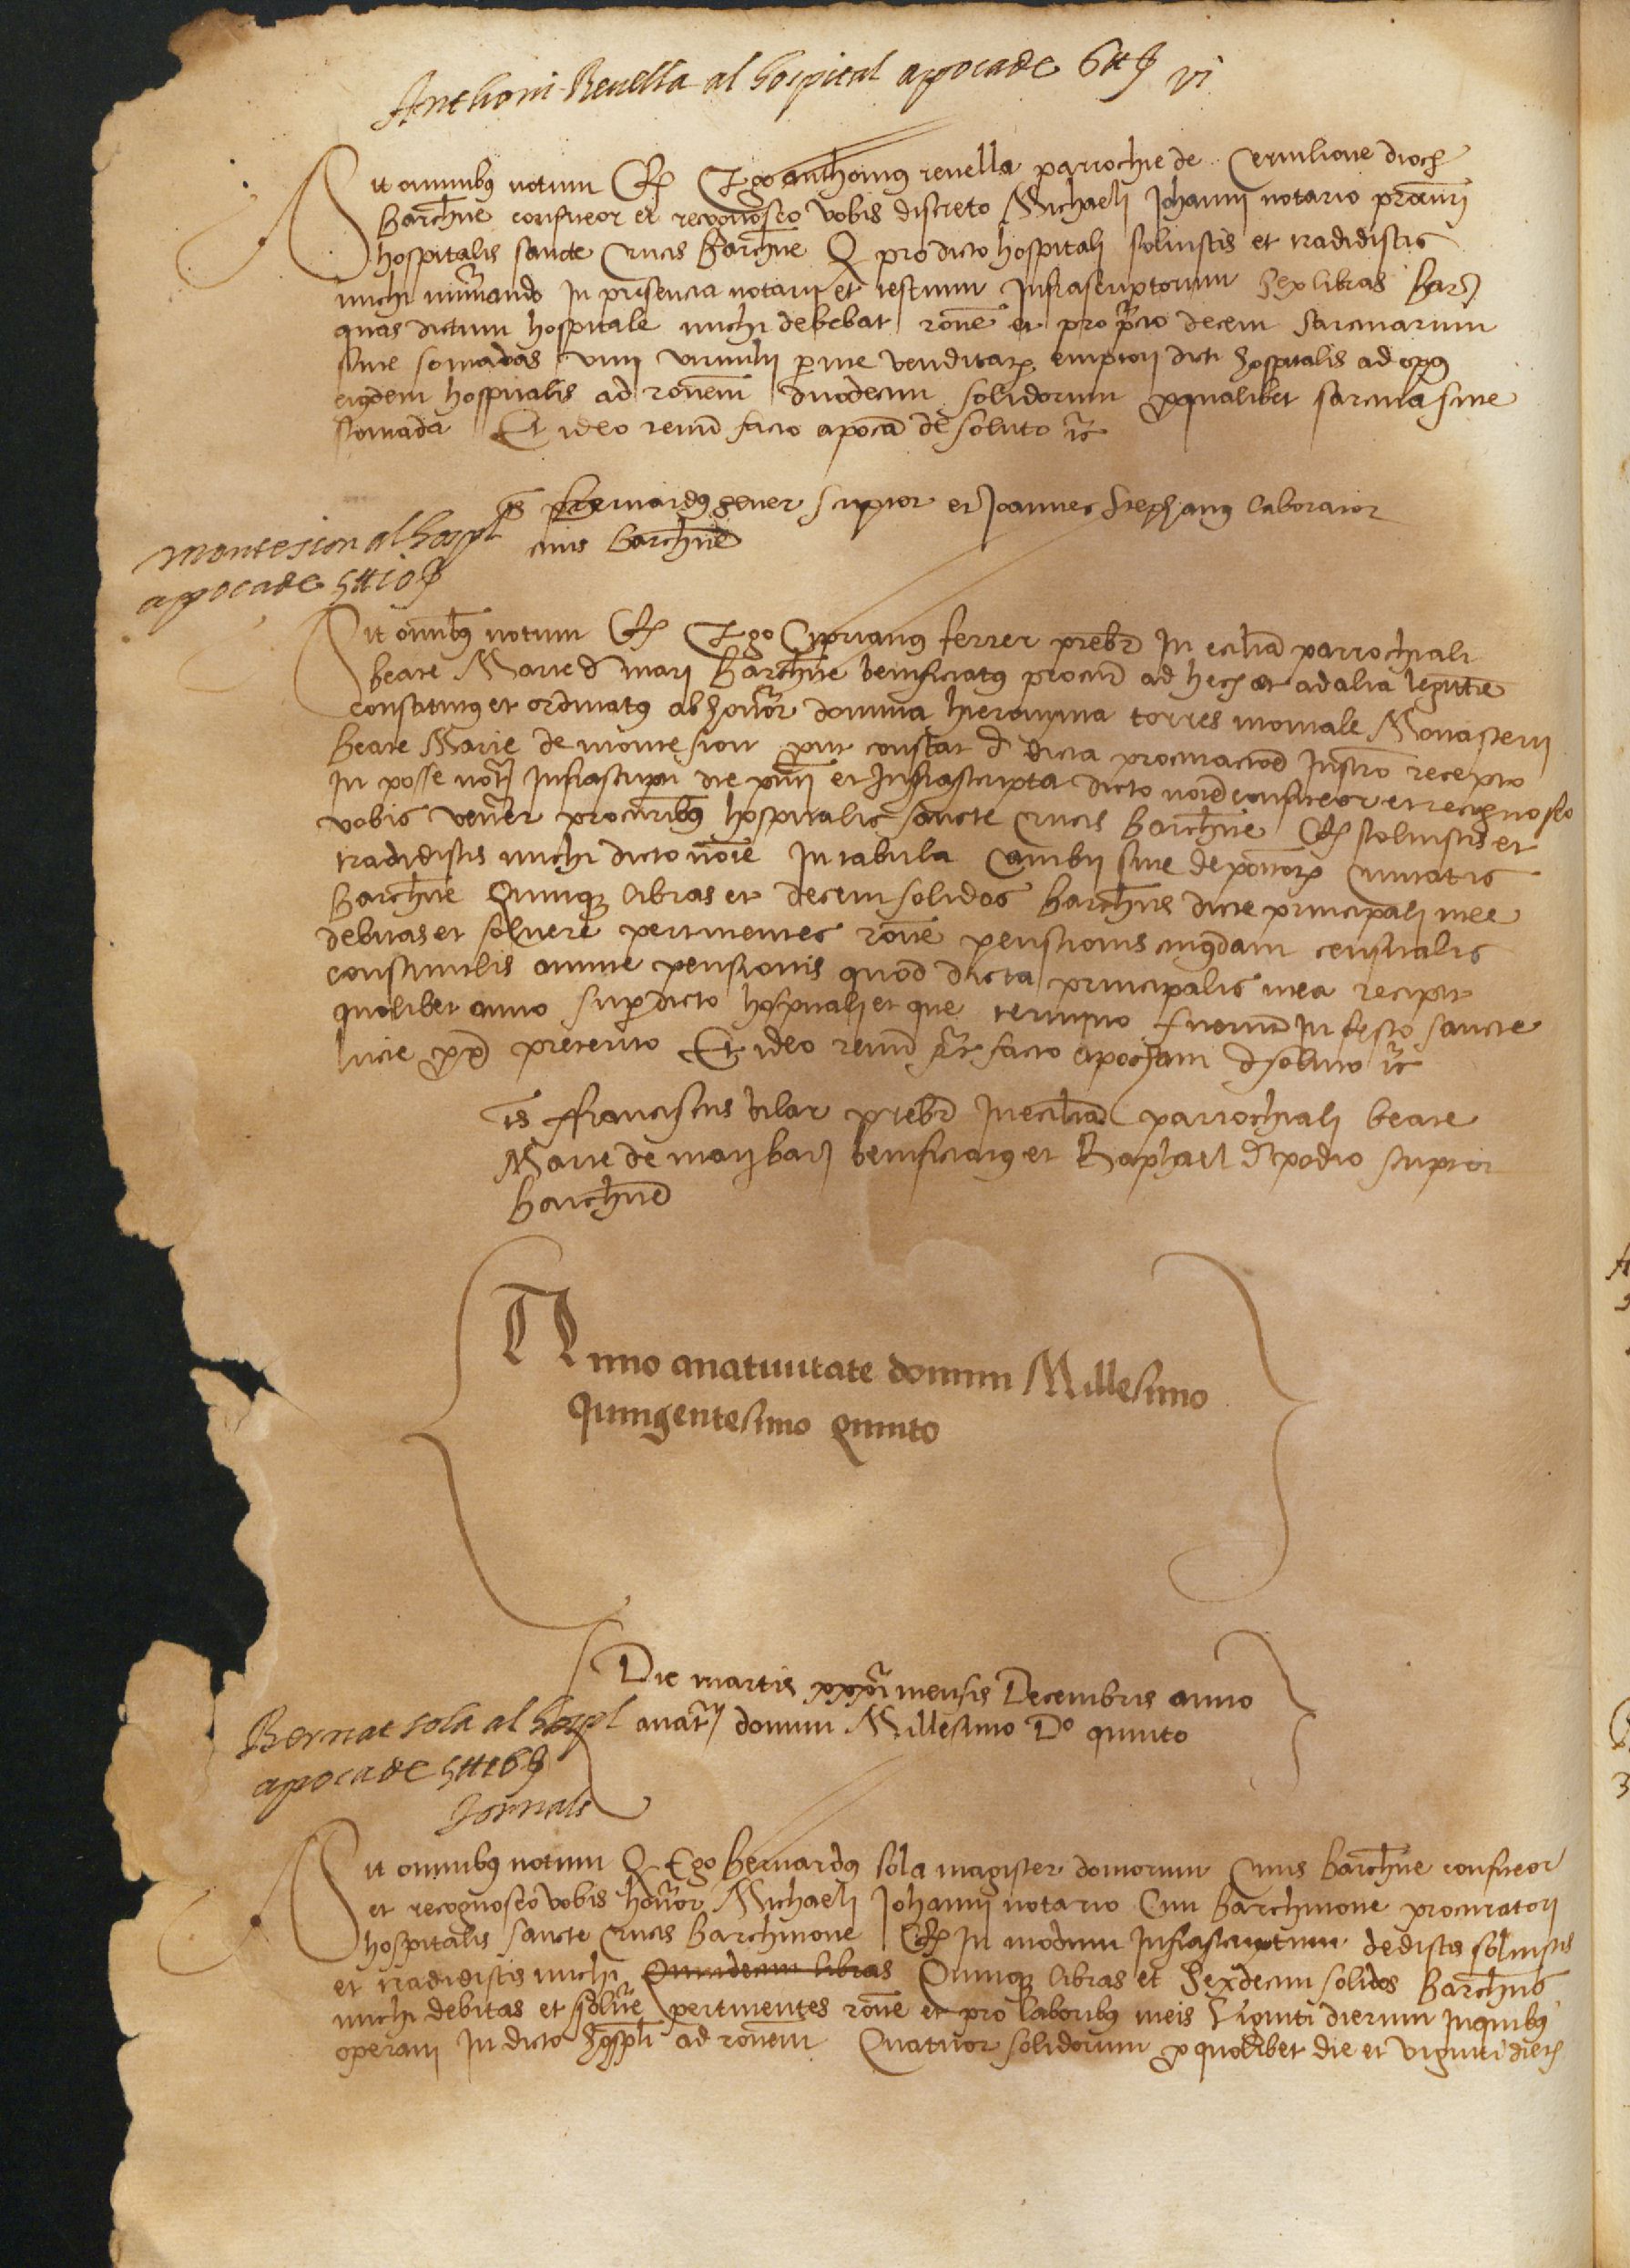 Anthoni Revella al hospital apocade 6 ₶ ß vi
Sit omnibus notum Q Ego anthonius revella parrochie de Cervilione dioc
Barchne confiteor et recognosco vobis discreto Michaeli Johanni notario procuri
hospitalis sancte Crucis Barchne Q pro dicto hospitali solvistis et tradidistis
michi numerando In presencia notarii et testium Infrascriptorum Sex libras Bars
quas dictum hospitale michi debebat rone et pro precio decem sarcinarum
sive somadas vini vermilii per me venditarum emptori dicti hospitalis ad opus
eiusdem hospitalis ad ronem duodecim solidorum pro qualibet sarcina sive
somada Et ideo renun facio apocam de soluto etc
ts Bernardus gener scriptor et Joannes Stephanus laborator
civis Barchne
montesion al hospl
apocade 5 ₶ 10 ß
Sit omnibus notum Q Ego Ciprianus ferrer prebr In eclia parrochiali
beate Marie d mari Barchne benificiatus procur ad hec et ad alia legittime
constitutus et ordinatus ab honor domina hieronima torres moniale Monasterii
Beate Marie de monte sion prout constat d dicta procuracioe Instro recepto
In posse notrj Infrascripti die pnti et Infrascripta dicto noie confiteor et recognosco
vobis vener procuribus hospitalis sancte Crucis Barchne Q solvistis et
tradidistis michi dicto noie In tabula Cambii sive depositorum Civitatis
Barchne Quinque libras et decem solidos Barchns dicte principali mee
debitas et solvere pertinentes rone pensionis cuiusdam censualis
consimilis annue pensionis quod dicta principalis mea recipit
quolibet anno super dicto hospitali et que termino fuerunt In festo sancte
lucie prox preterito Et ideo renun etc facio apocham d soluto etc
ts ffranciscus vilar prebr In eclia parrochiali beate
Marie de mari bars benificiatus et Raphael d podio scriptor
Barchne
Anno anativitate domini Millesimo
Quingentesimo Quinto
Die martis xxxi mensis Decembris anno
anatj domini Millesimo Do quinto
Bernat sola al hospl
apocade 5 ₶ 16 ß
Jornals
Sit omnibus notum Q Ego Bernardus sola magister domorum Civis Barchne confiteor
et recognosco vobis honor Michaeli Johanni notario Civi Barchinone procuratori
hospitalis sancte Crucis Barchinone Q In modum Infrascriptum dedistis solvistis
et tradidistis michi Quindecim libras Quinque libras et Sexdecim solidos Barchns
michi debitas et solvere pertinentes rone et pro laboribus meis Viginti dierum In quibus
operari In dicto hospli ad ronem Quatuor solidorum pro quolibet die et viginti diers